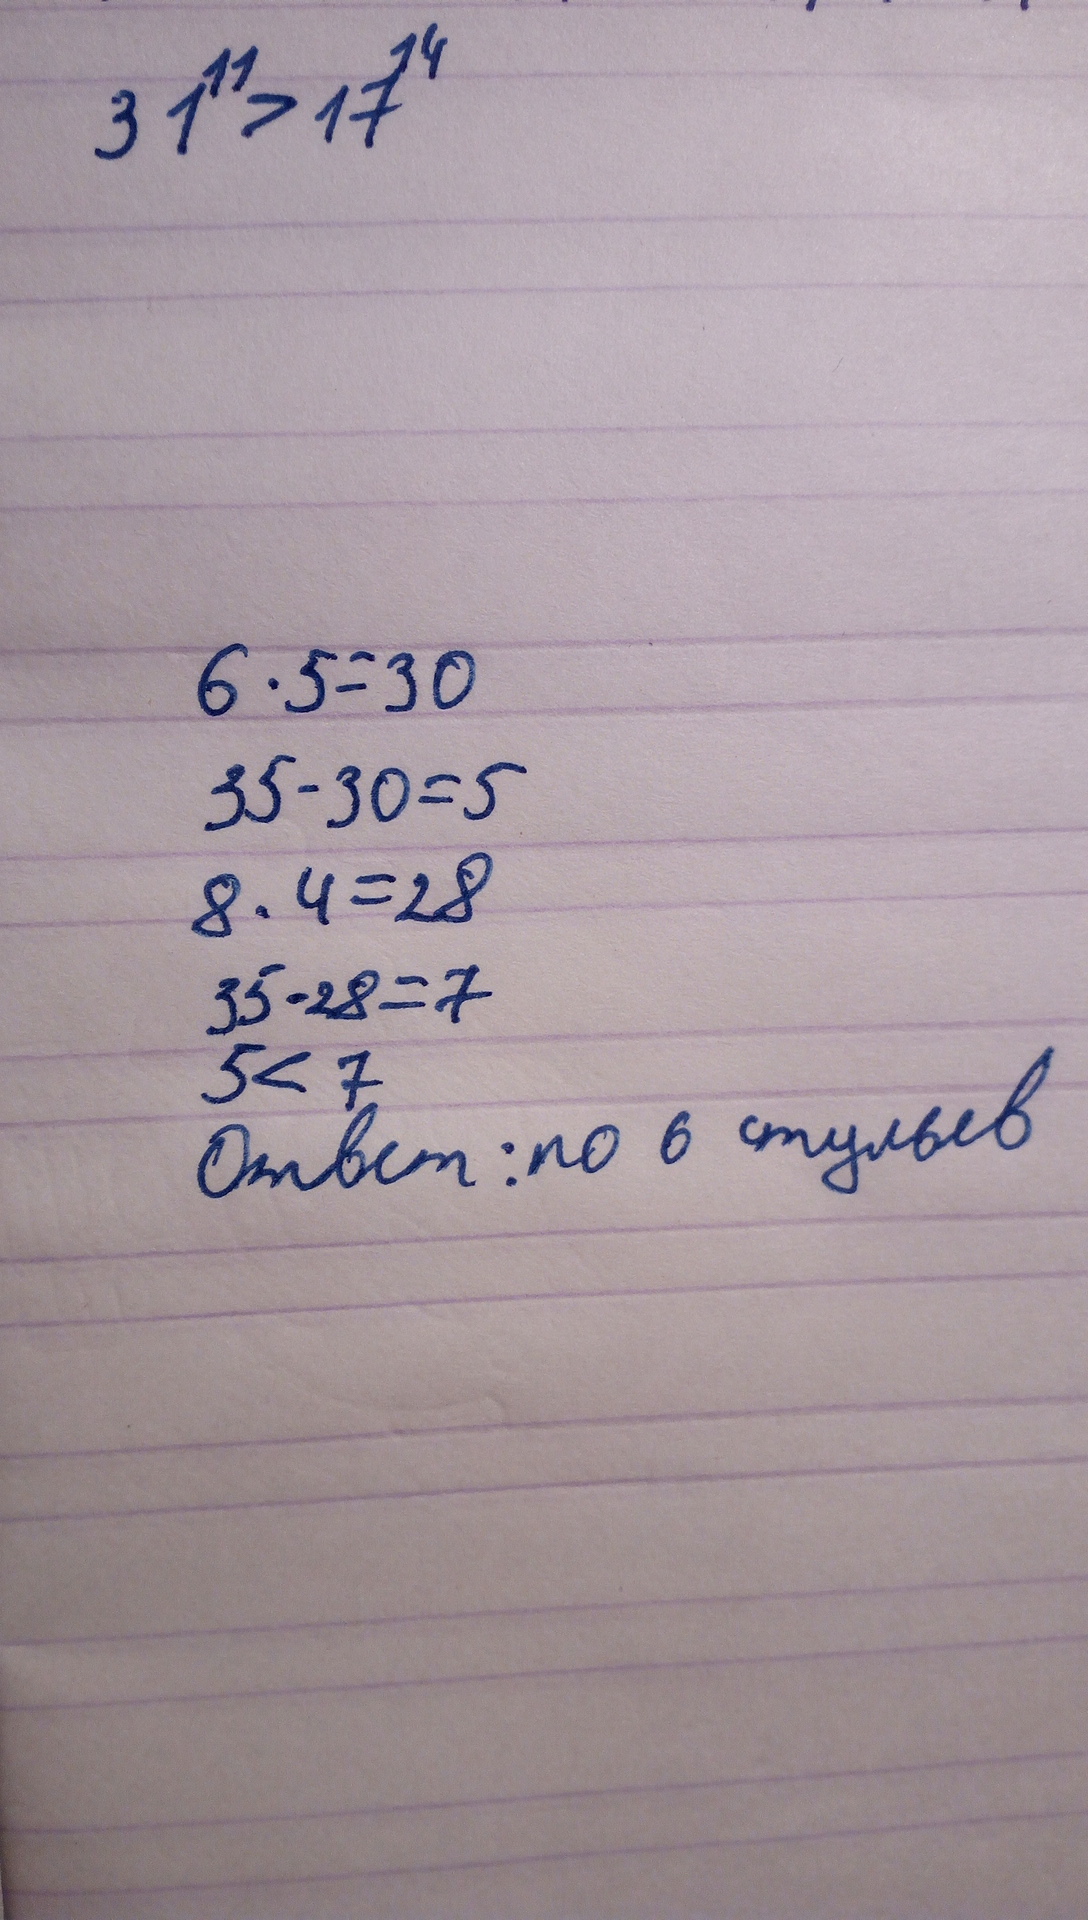 31¹¹ > 17¹⁴
6 · 5 = 30
35 - 30 = 5
8 · 4 = 28
35 - 28 = 7
5 < 7
Ответ: по 6 стульев